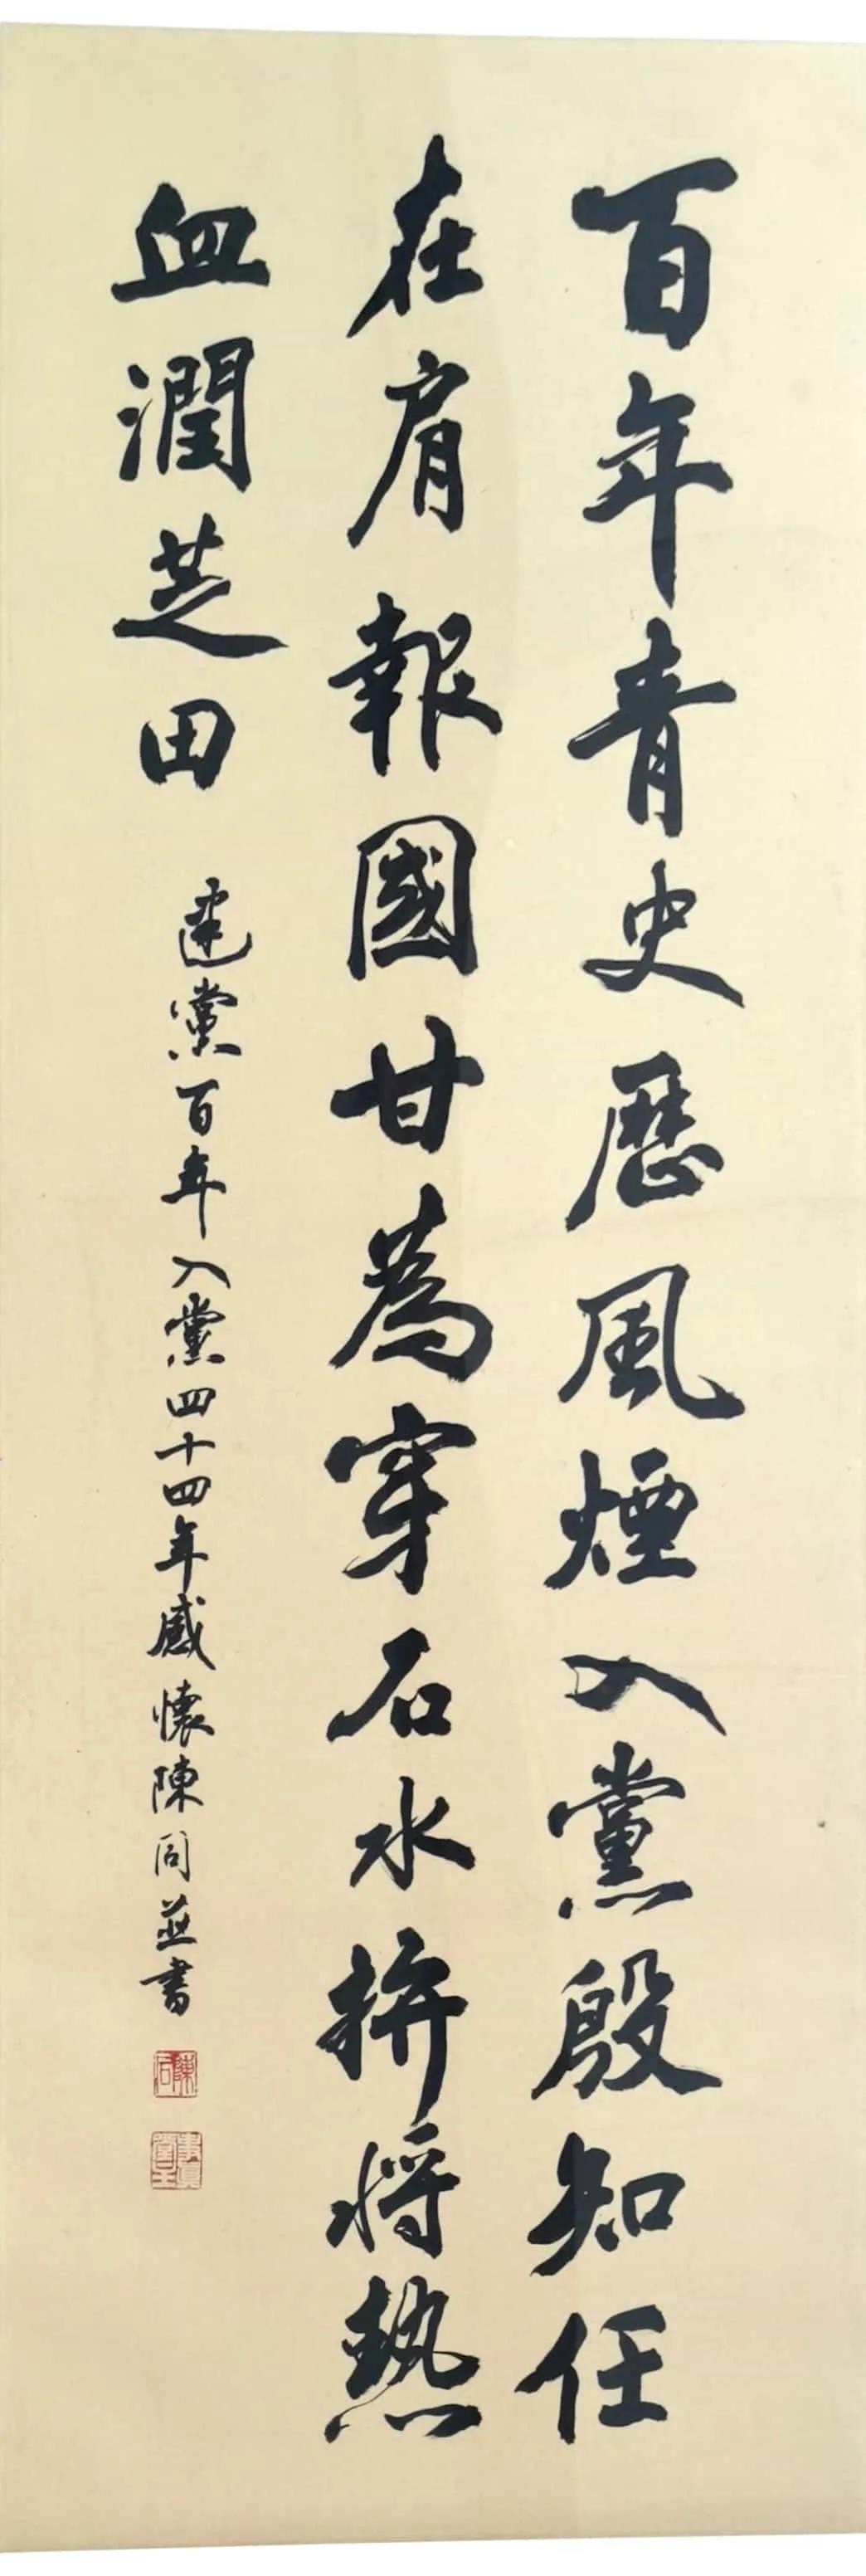 百年青史歷風煙入黨殷知任
在肩報國甘為穿石水拚將熱
血潤芝田
建黨百年入黨四十四年感懷陳同並書